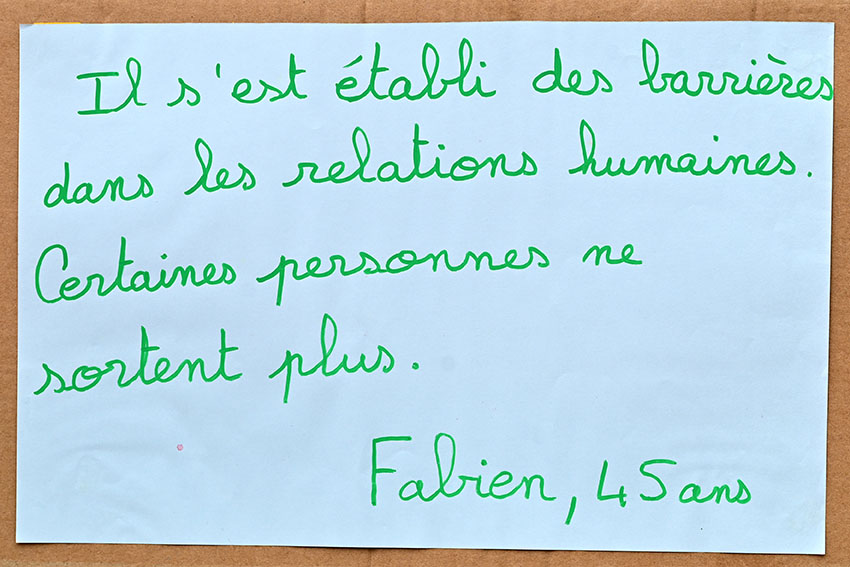 Il s'est établi des barrières
dans les relations humaines.
Certaines personnes ne
sortent plus.
Fabien, 45 ans